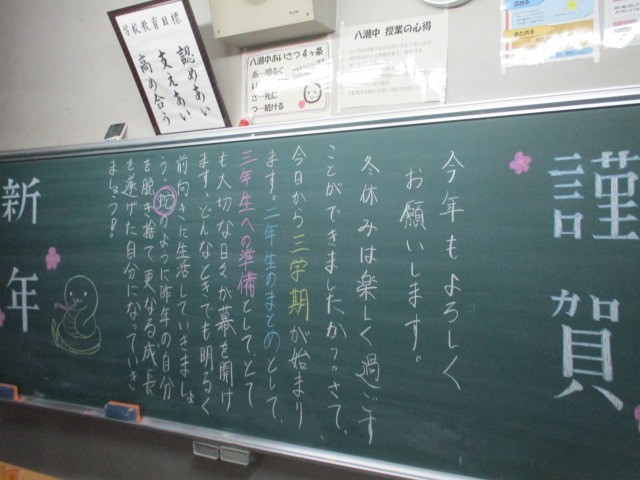 学校教育目標
認めあい
支えあい
高め合う
八潮中あいさつ4ヶ条
あ…明るく
い…
さ…先に
つ…続ける
八潮中 授業の心得
謹賀
新年
今年もよろしく
お願いします。
冬休みは楽しく過ごす
ことができましたか?さて、
今日から三学期が始まり
ます。二年生のまとめとして、
三年生への準備として、とて
も大切な日々が幕を開け
ます。どんなときでも明るく
前向きに生活していきましょ
う。蛇のように昨年の自分
を脱ぎ捨て更なる成長
を遂げた自分になっていき
ましょう!!